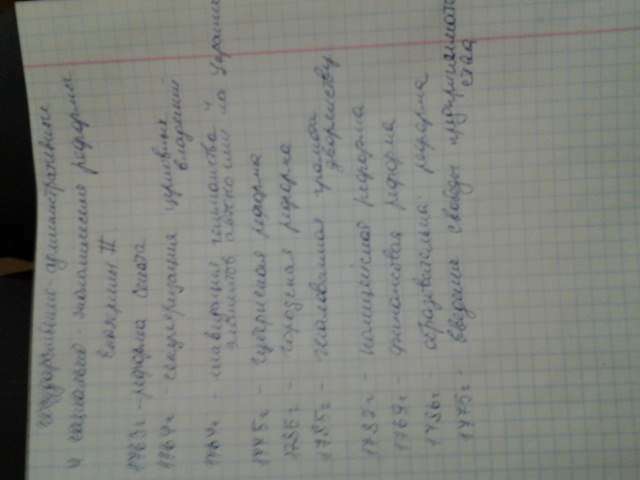 государственно-административные
и социально-экономические реформы
Екатерины II
1763г - реформа Сената
1764г - секуляризация церковных
владений
1764г - ликвидация гетманства и
элементов автономии на Украине
1775г - губернская реформа
1785г - городская реформа
1785г - жалованная грамота
дворянству
1782г - полицейская реформа
1769г - финансовая реформа
1786г - образовательная реформа
1775г - введение свободы предприниматель
ства